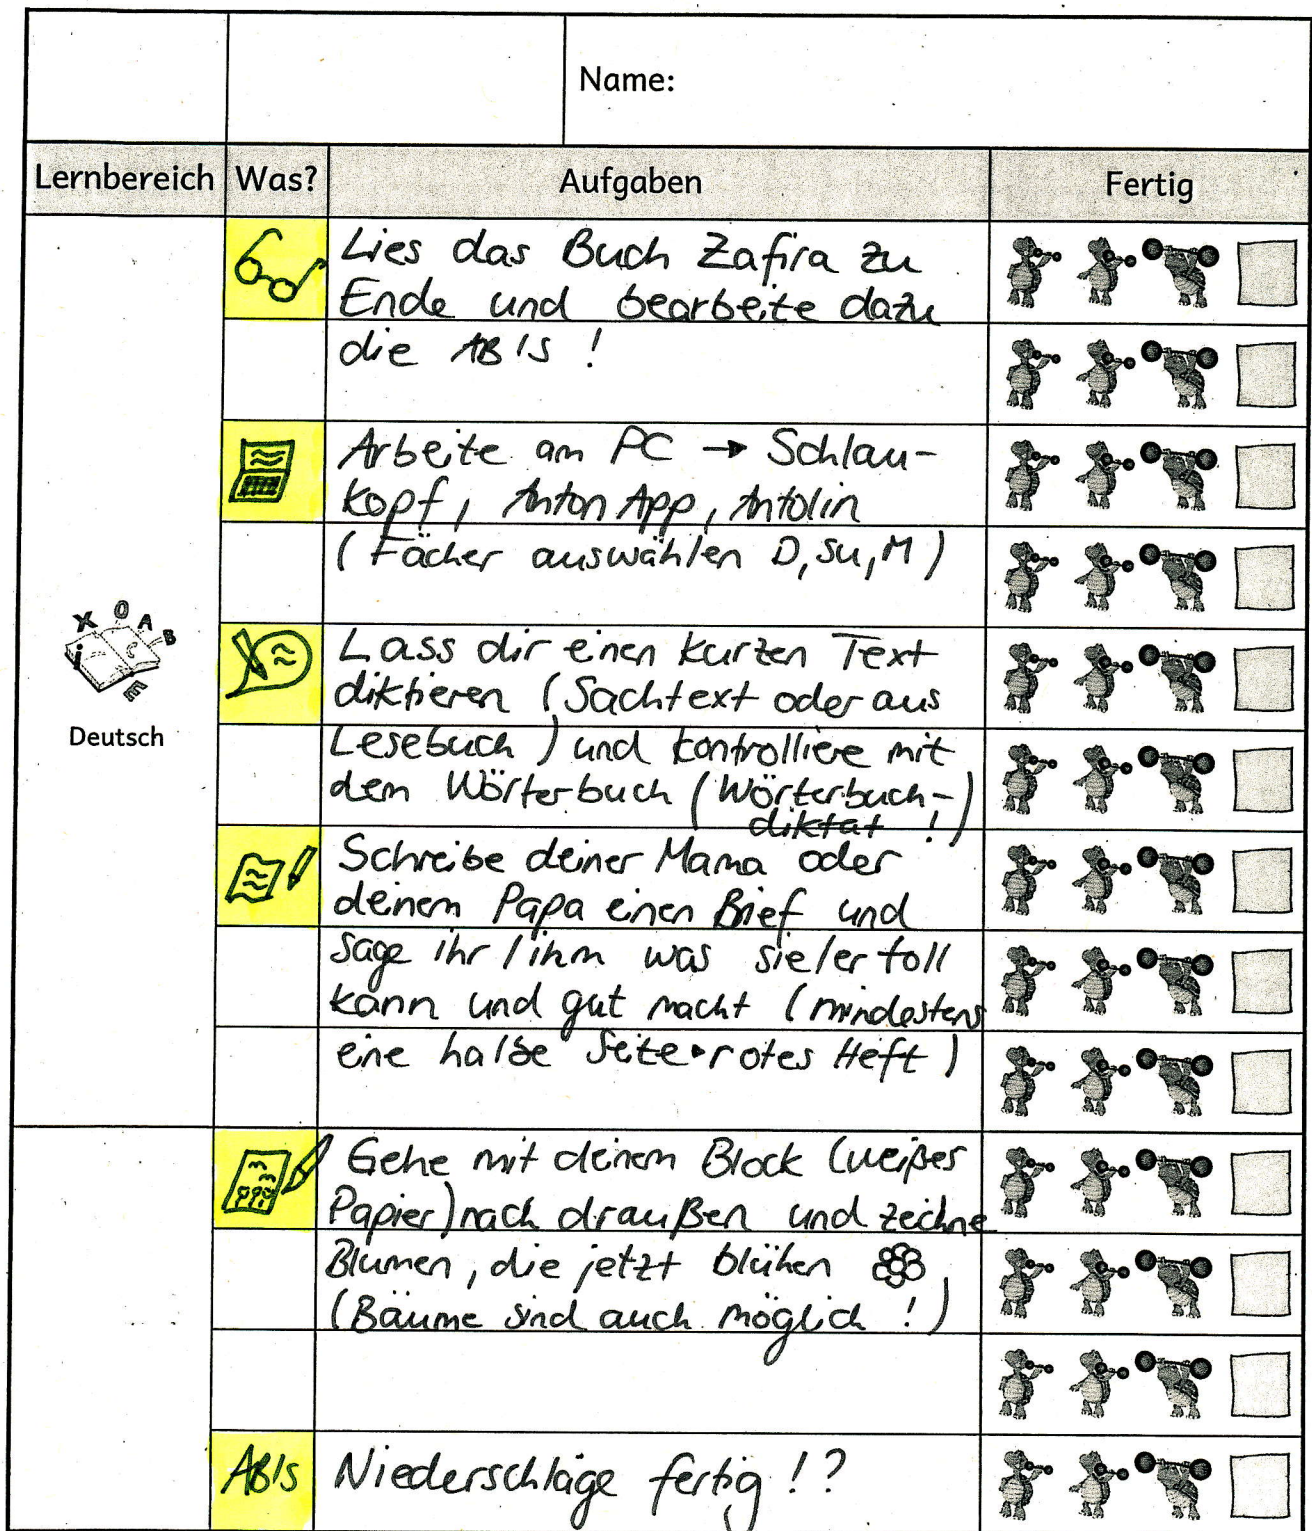 Name:
Lernbereich Was? Aufgaben Fertig
Lies das Buch Zafira zu
Ende und bearbeite dazu
die AB's !
Arbeite am PC → Schlau-
kopf, Anton App, Antolin
(Fächer auswählen D, Su, M)
X O A B
i E
Lass dir einen kurzen Text
diktieren (Sachtext oder aus
Deutsch
Lesebuch) und kontrolliere mit
dem Wörterbuch (Wörterbuch-
diktat !)
Schreibe deiner Mama oder
deinem Papa einen Brief und
sage ihr / ihm was sie/er toll
kann und gut macht (mindestens
eine halbe Seite • rotes Heft)
Gehe mit deinem Block (weißes
Papier) nach draußen und zeichne
Blumen, die jetzt blühen
(Bäume sind auch möglich !)
AB's Niederschläge fertig !?